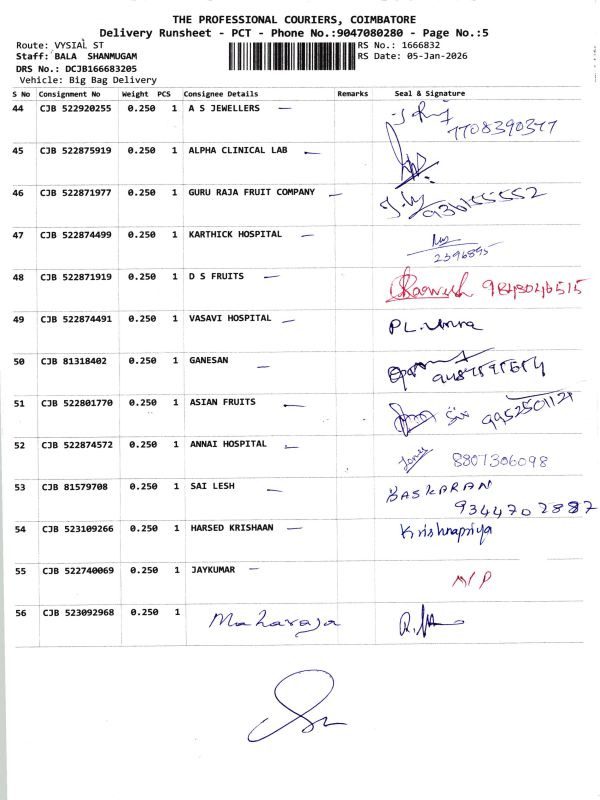 THE PROFESSIONAL COURIERS, COIMBATORE
Delivery Runsheet - PCT - Phone No.:9047080280 - Page No.:5
Route: VYSIAL ST RS No.: 1666832
Staff: BALA SHANMUGAM RS Date: 05-Jan-2026
DRS No.: DCJB166683205
Vehicle: Big Bag Delivery
S No Consignment No Weight PCS Consignee Details Remarks Seal & Signature
44 CJB 522920255 0.250 1 A S JEWELLERS — 7708390377
45 CJB 522875919 0.250 1 ALPHA CLINICAL LAB —
46 CJB 522871977 0.250 1 GURU RAJA FRUIT COMPANY —
47 CJB 522874499 0.250 1 KARTHICK HOSPITAL — 2396895
48 CJB 522871919 0.250 1 D S FRUITS — 9843046515
49 CJB 522874491 0.250 1 VASAVI HOSPITAL —
50 CJB 81318402 0.250 1 GANESAN —
51 CJB 522801770 0.250 1 ASIAN FRUITS — 9952501121
52 CJB 522874572 0.250 1 ANNAI HOSPITAL — 8807306098
53 CJB 81579708 0.250 1 SAI LESH — BASKARAN
9344702887
54 CJB 523109266 0.250 1 HARSED KRISHAAN — Krishnapriya
55 CJB 522740069 0.250 1 JAYKUMAR — N/P
56 CJB 523092968 0.250 1 Maharaja